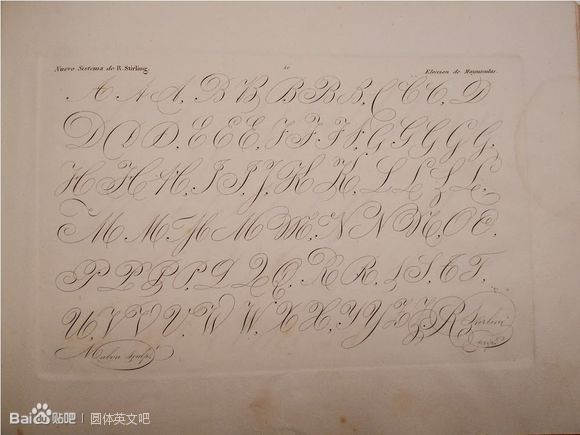 Nuevo Sistema de R. Stirling. 10 Eleccion de Mayusculas.
A A A, B B B B B, C C C, D
D D D, E E E, F F, F F, G G G G G,
H H H, I I, J, K K, L L L L,
M M, M M M, N N N, O E,
P P P P, Q Q Q, R R, S S, T T,
U, V V V, W W, X X, Y Y Z Z, R Stirling
Mabon sculpt
Bai du 贴吧 | 圆体英文吧